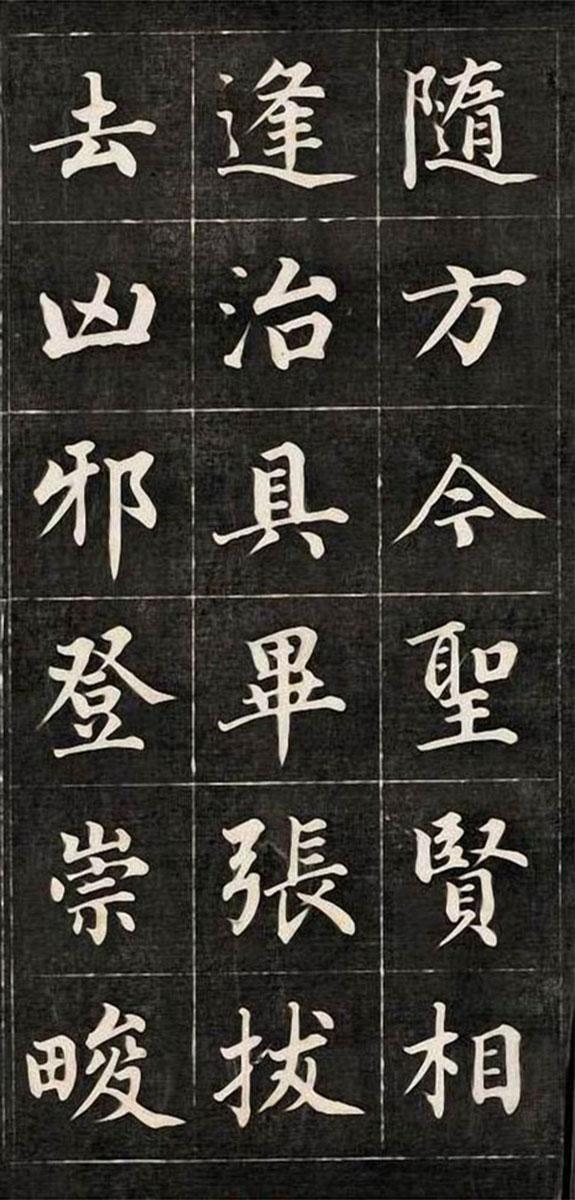 隨方今聖賢相
逢治具畢張拔
去凶邪登崇畯